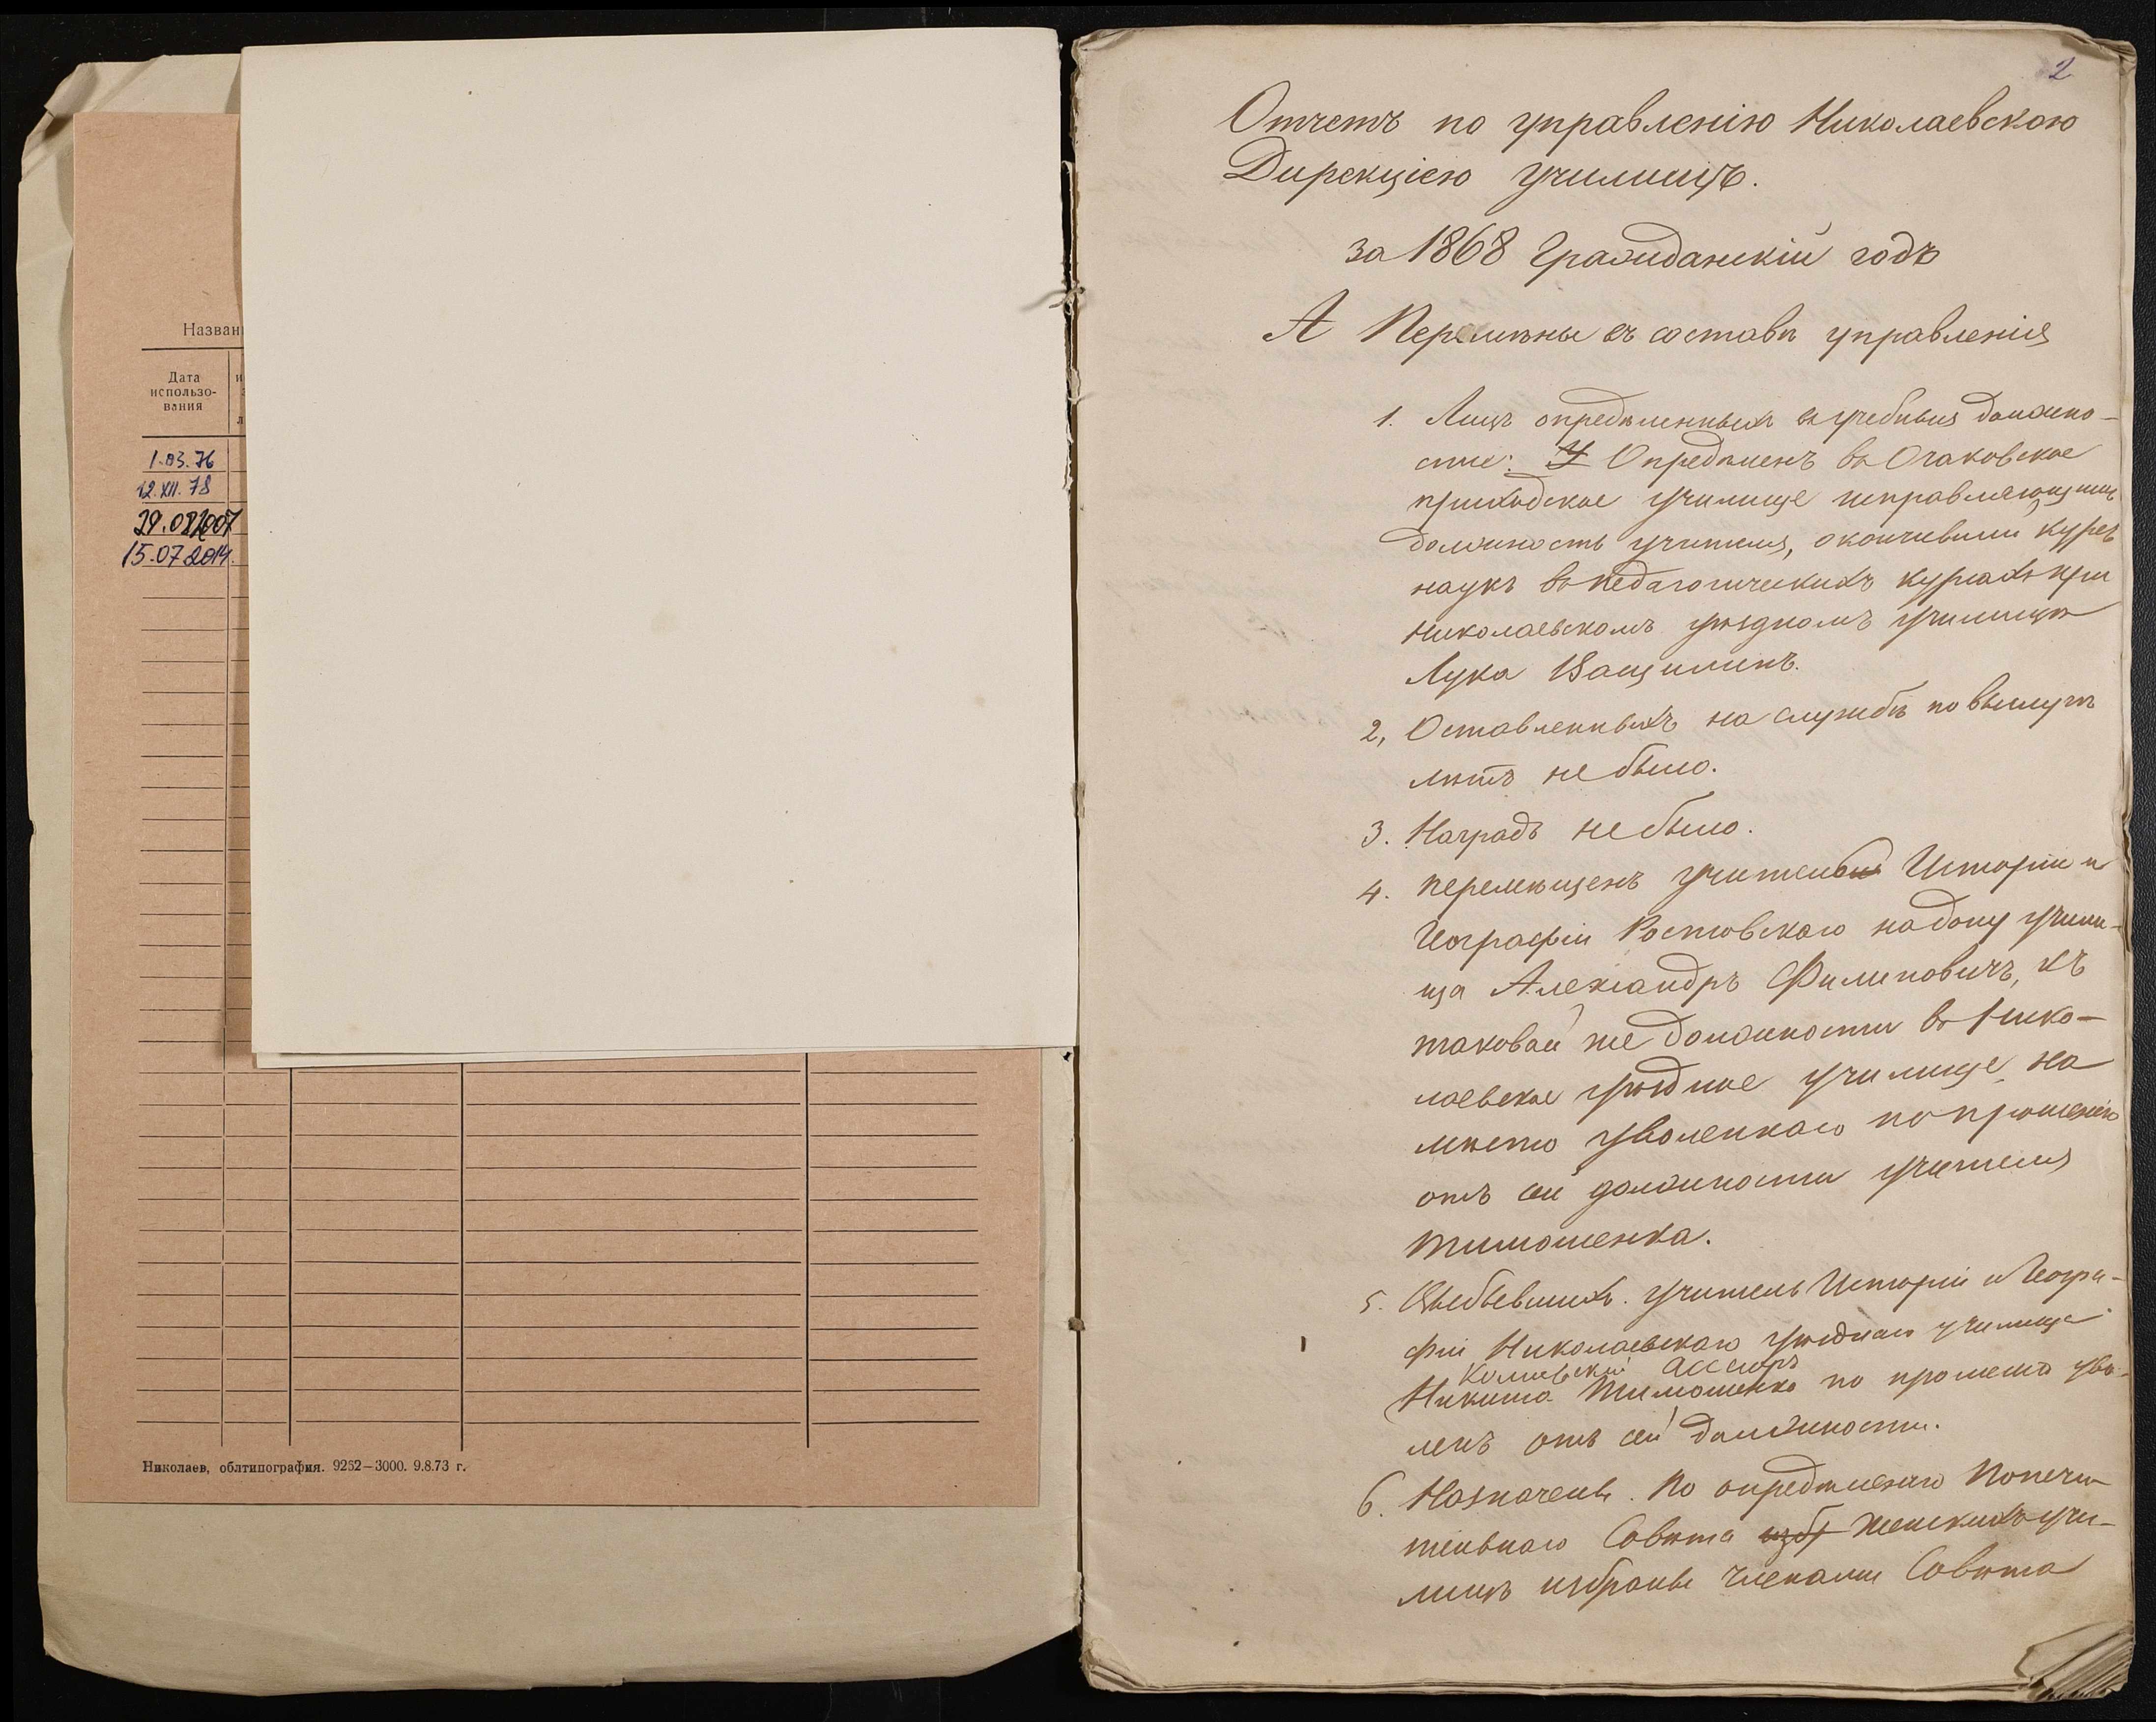 Назван
Дата
использо-
вания
1.03.76
12.XII.78
29.08.2007
15.07.2014.
Николаев, облтипография. 9252—3000. 9.8.73 г.
2
Отчетъ по управленію Николаевскою
Дирекціею училищъ.
за 1868 Гражданскій годъ
А Перемѣны въ составѣ управленія
1. Лицъ опредѣленныхъ въ учебныя должно-
сти: У Опредѣленъ въ Очаковское
приходское училище исправляющимъ
должность учителя, окончившій курсъ
наукъ въ педагогическихъ курсахъ при
Николаевскомъ уѣздномъ училищѣ
Лука Ващилинъ.
2, Оставленныхъ на службѣ по выслугѣ
лѣтъ не было.
3. Наградъ не было.
4. Перемѣщенъ учитель Исторіи и
Географіи Ростовскаго на дону учили-
ща Александръ Филиповичъ, къ
таковой же должности въ Нико-
лаевское уѣздное училище, на
мѣсто уволеннаго по прошенію
отъ сей должности учителя
Тимошенка.
5. Выбывшихъ. Учитель Исторіи и Геогра-
фіи Николаевскаго уѣзднаго училища
Колежскій Ассесоръ
Никита Тимошенко по прошенію уво-
ленъ отъ сей должности.
6. Назначены. По опредѣленію Попечи-
тельнаго Совѣта изб женскихъ учи-
лищъ избраны членами Совѣта